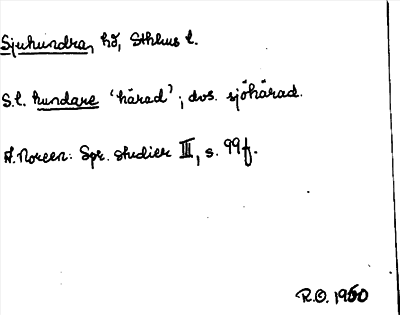 Sjuhundra, hd, Sthlms l.
S.l. hundare 'härad'; dvs. sjöhärad.
A. Noreen: Spr. studier III, s. 99f.
R.O. 1950